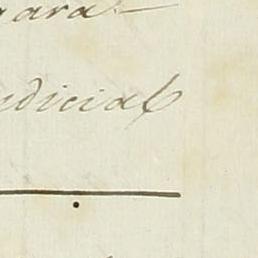 gara
udicial